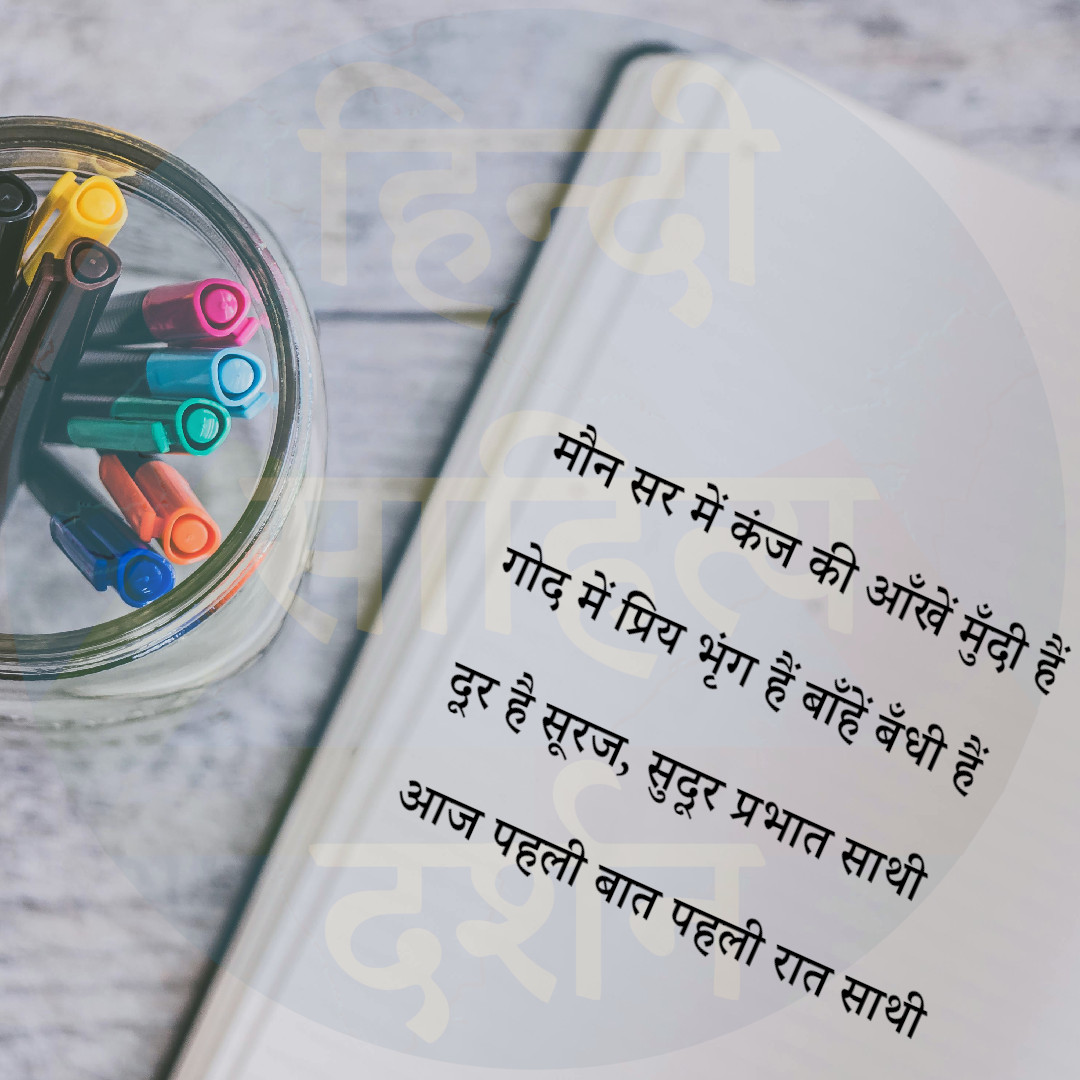 हिन्दी
साहित्य
दर्शन
मौन सर में कंज की आँखें मुँदी हैं
गोद में प्रिय भृंग हैं बाँहें बँधी हैं
दूर है सूरज, सुदूर प्रभात साथी
आज पहली बात पहली रात साथी